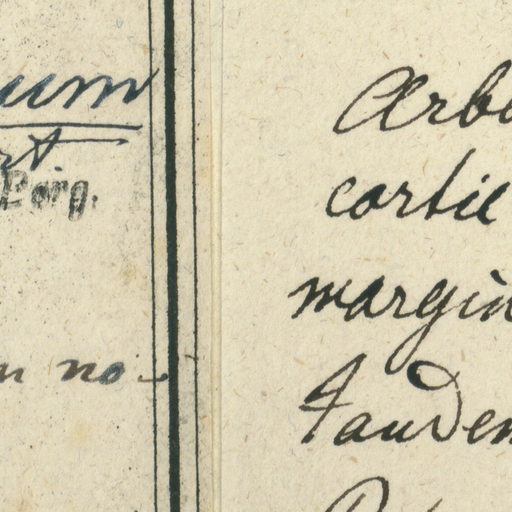 um
rt
Borg.
m no
Arbo
cortic
margin
tanden